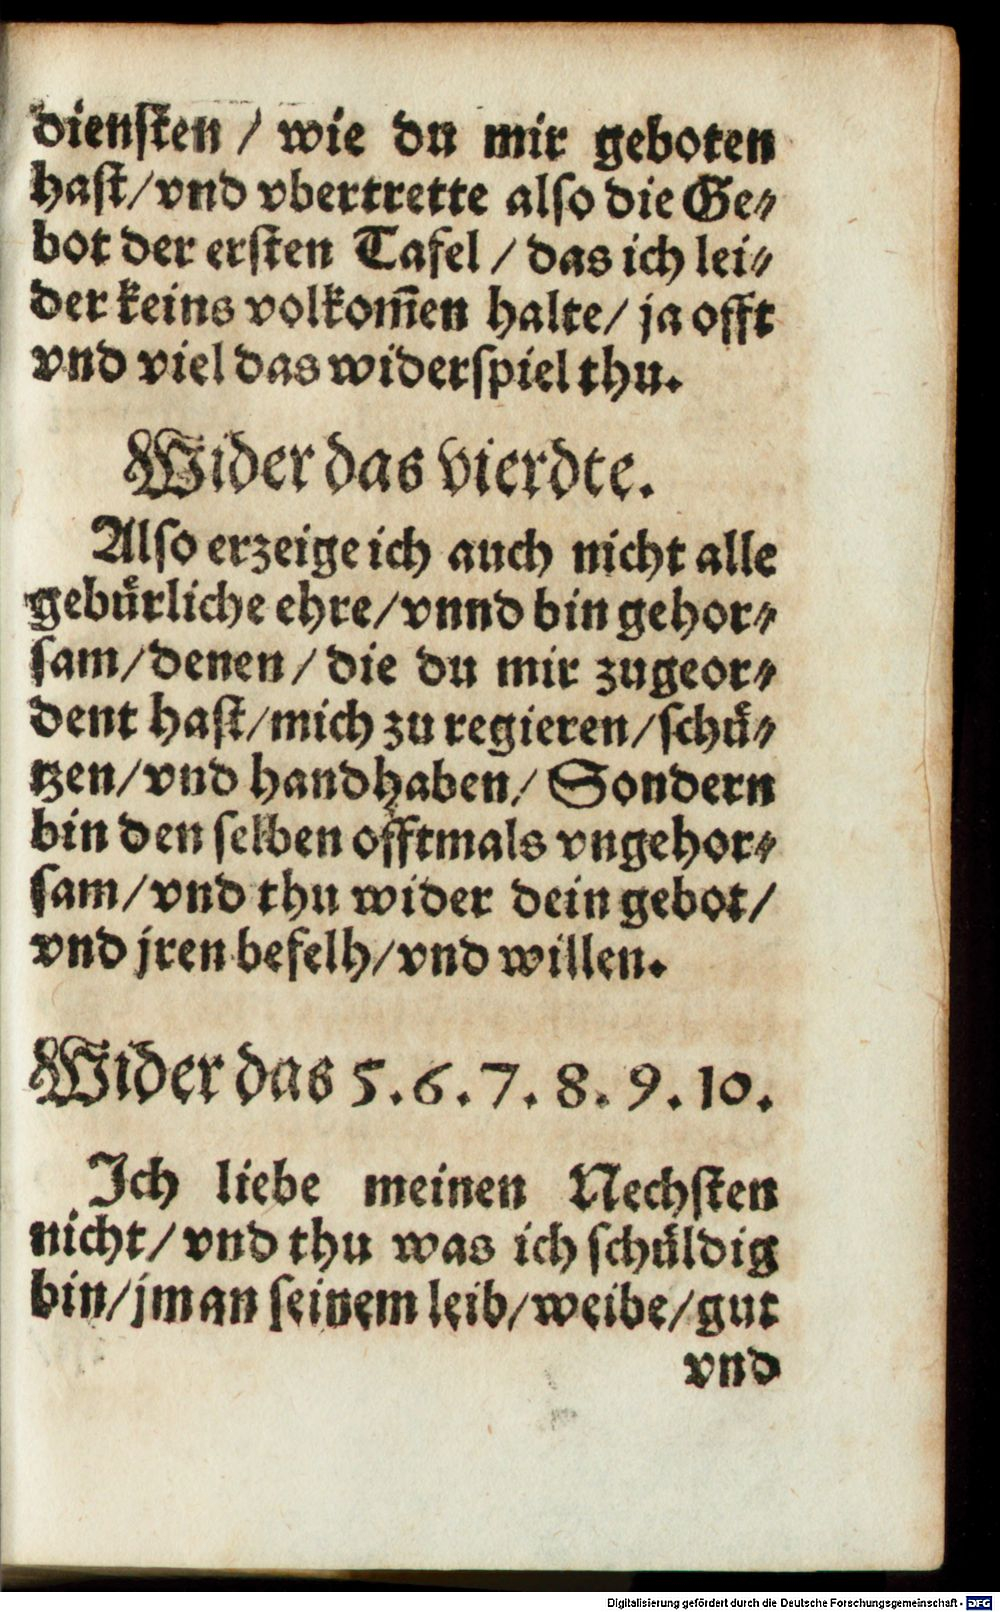 diensten / wie du mir geboten
hast/vnd vbertrette also die Ge⸗
bot der ersten Tafel / das ich lei⸗
der keins volkom̃en halte/ ja offt
vnd viel das widerspiel thu.
Wider das vierdte.
Also erzeige ich auch nicht alle
gebuͤrliche ehre/vnnd bin gehor⸗
sam/denen / die du mir zugeor⸗
dent hast/mich zu regieren/schuͤ⸗
tzen/vnd handhaben/ Sondern
bin den selben offtmals vngehor⸗
sam/vnd thu wider dein gebot/
vnd jren befelh/vnd willen.
Wider das 5.6.7.8.9.10.
Ich liebe meinen Nechsten
nicht/vnd thu was ich schuͤldig
bin/jm an seinem leib/weibe/gut
vnd
Digitalisierung gefördert durch die Deutsche Forschungsgemeinschaft - DFG